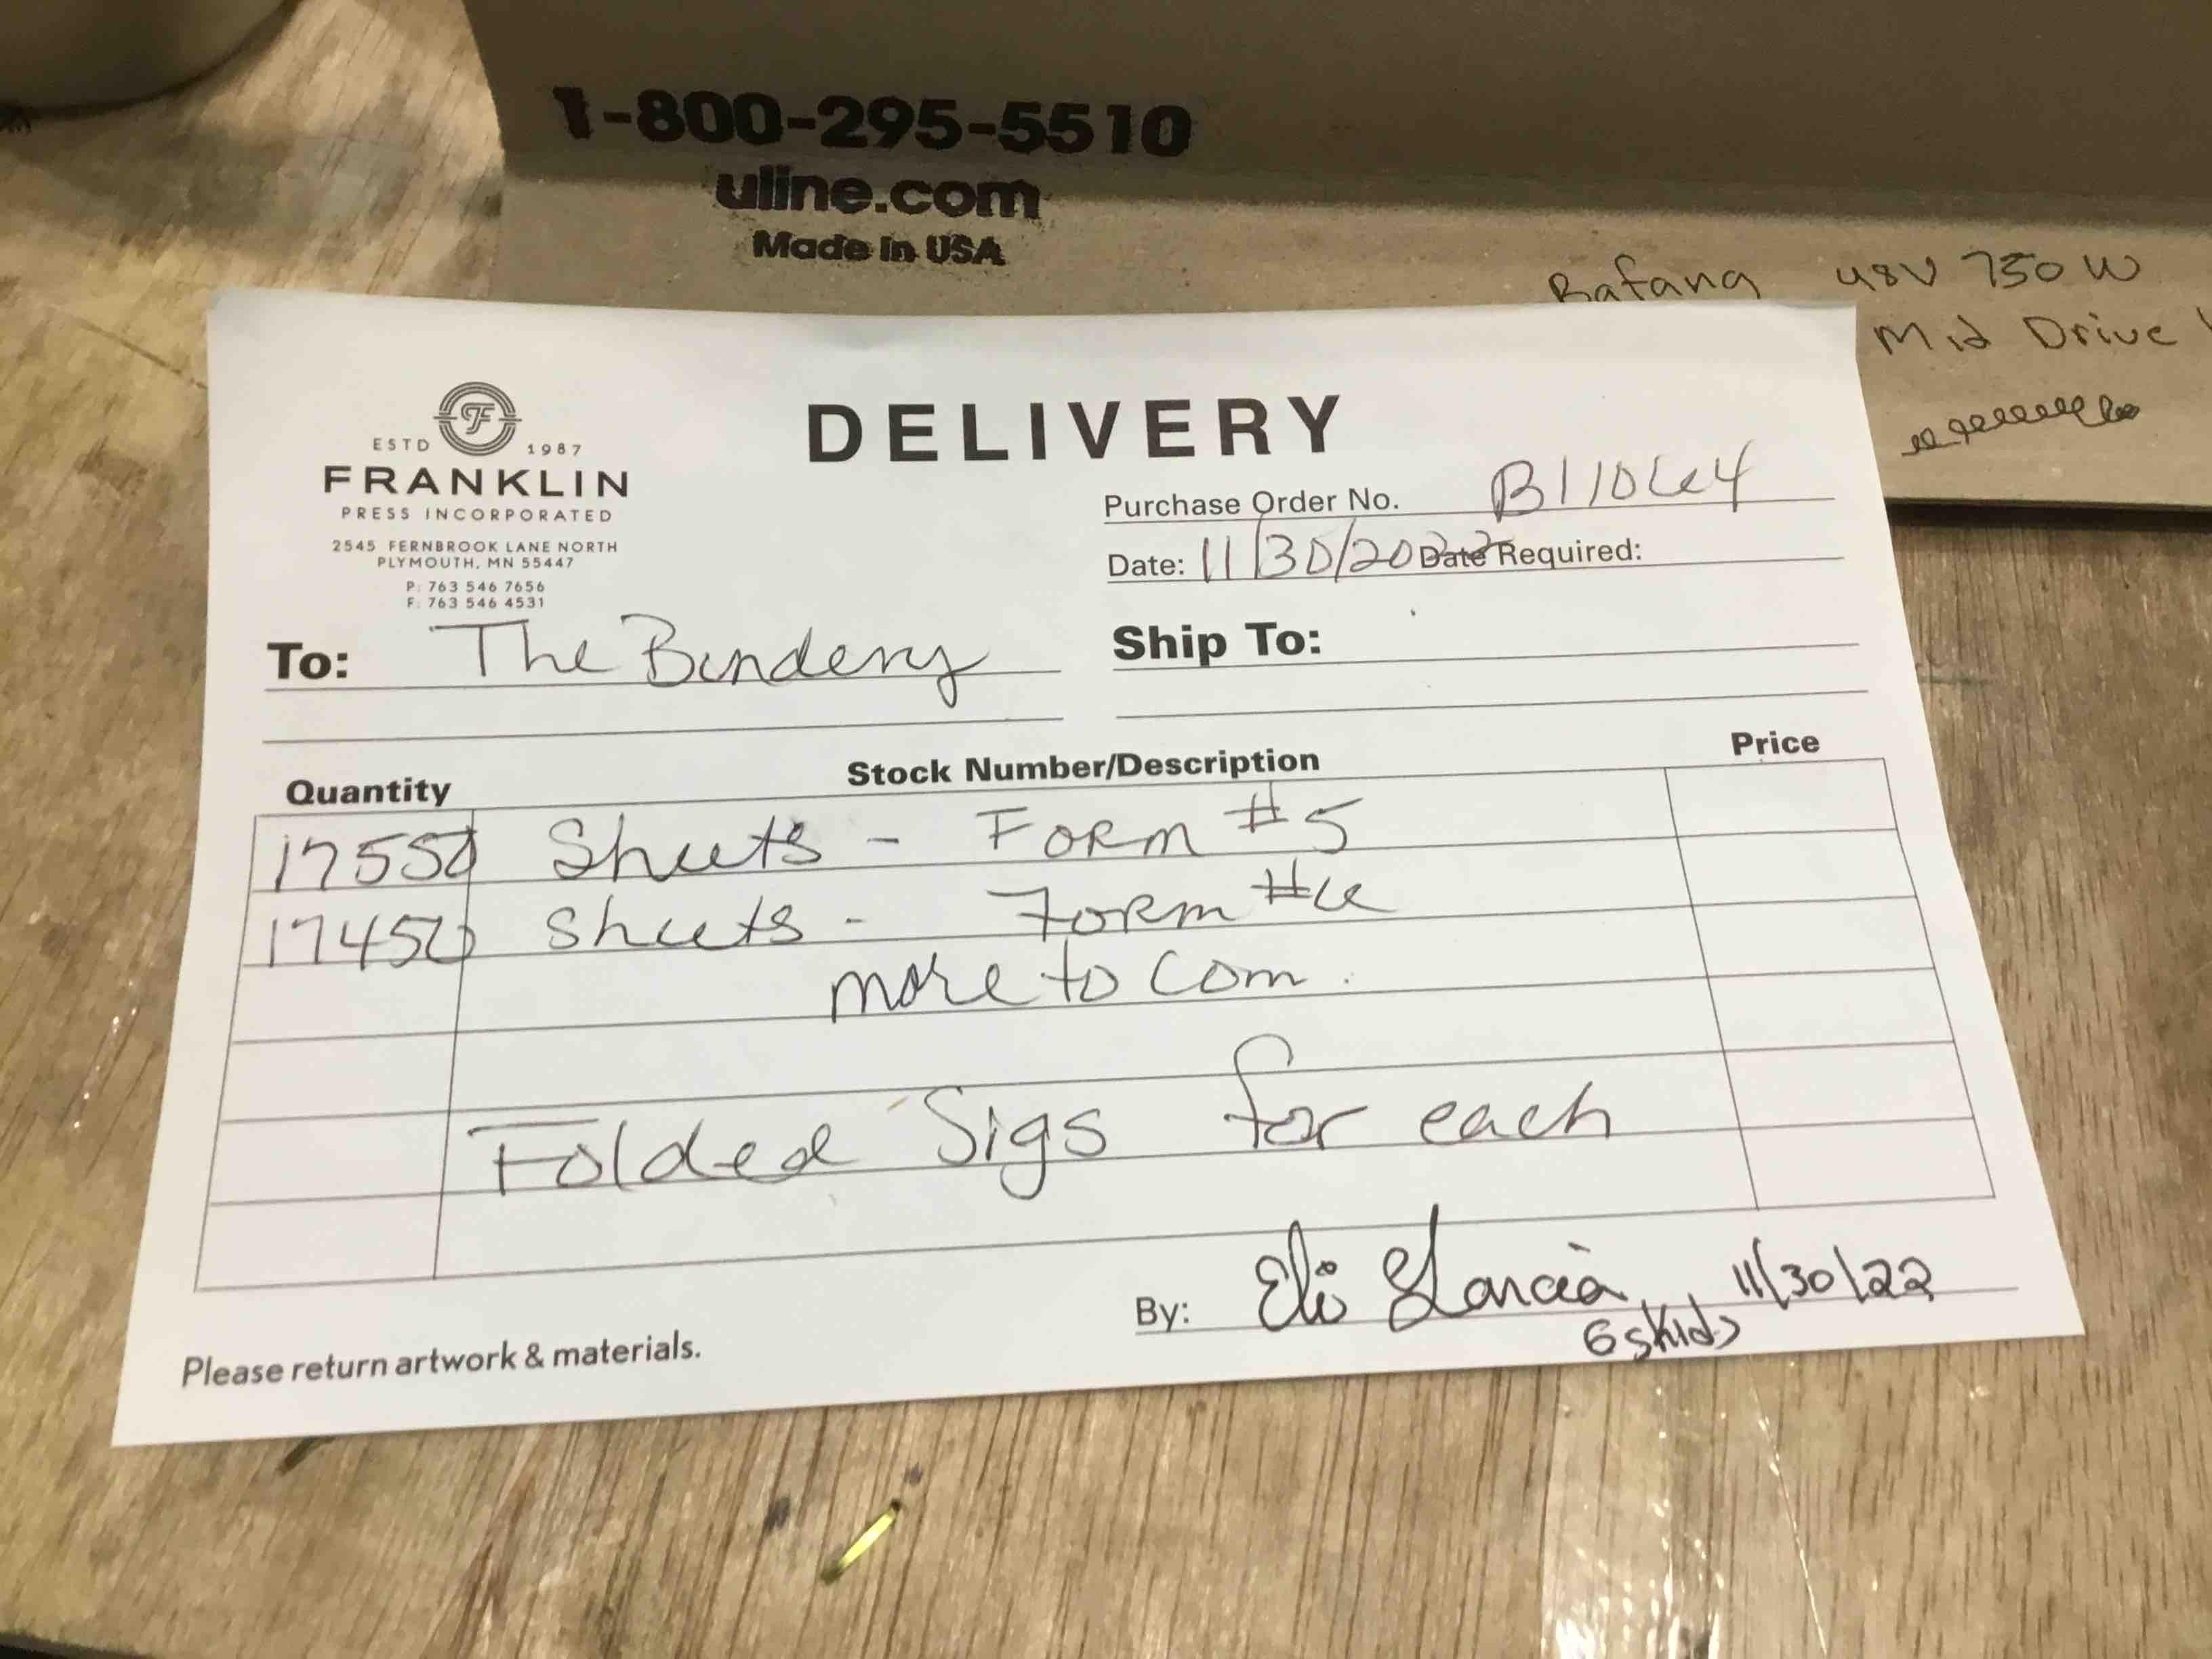 1-800-295-5510
uline.com
Made in USA
Bafang 48V 750W
Mid Drive
ESTD F 1987
FRANKLIN
PRESS INCORPORATED
2545 FERNBROOK LANE NORTH
PLYMOUTH, MN 55447
P: 763 546 7656
F: 763 546 4531
DELIVERY
Purchase Order No. B110664
Date: 11/30/2022 Date Required:
To: The Bindery
Ship To:
Quantity Stock Number/Description Price
17550 Sheets - Form #5
17450 Sheets - Form #6
more to com.
Folded Sigs for each
By: Eli Garcia 11/30/22
6 skids
Please return artwork & materials.